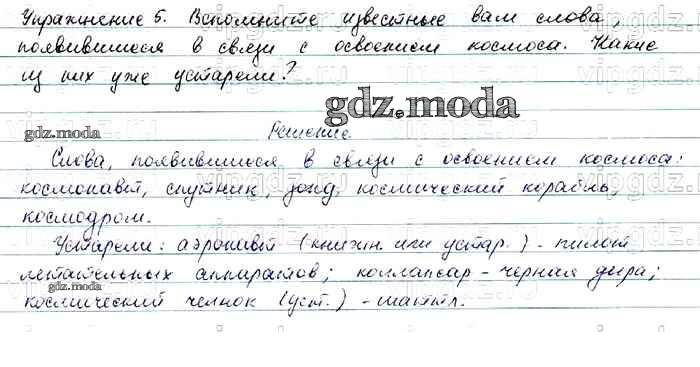 Упражнение 5. Вспомните известные вам слова,
появившиеся в связи с освоением космоса. Какие
из них уже устарели?
gdz.moda
gdz.moda
Решение.
Слова, появившиеся в связи с освоением космоса:
космонавт, спутник, зонд, космический корабль,
космодром.
Устарели: аэронавт (книжн. или устар.) - пилот
летательных аппаратов; коллапсар - чёрная дыра;
космический челнок (уст.) - шаттл.
gdz.moda